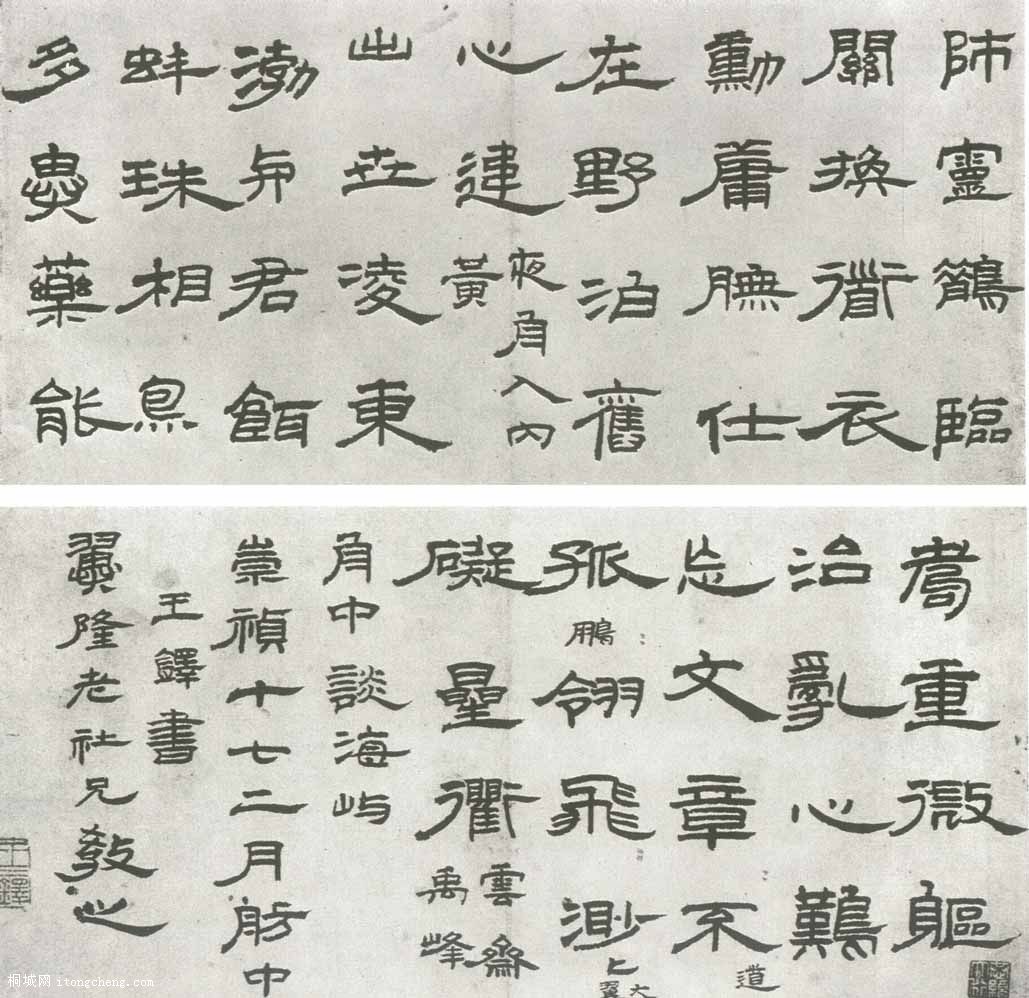 師靈鶴臨
關換道衣
勳庸膴仕
在野泊舊
夜角入內
黃
心
出世凌東
渤與君餌
蚌珠相
多異藥能
重微軀
治亂心難
忘文章不
道
孤翎飛渺
鵬
礙星衢
雲齋
禹峰
角中談海嶼
崇禎十七二月舫中
王鐸書
翼隆老社兄教之
王鐸
桐城网 itongcheng.com